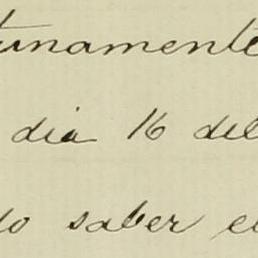 tunamente
dia 16 del
do saber el